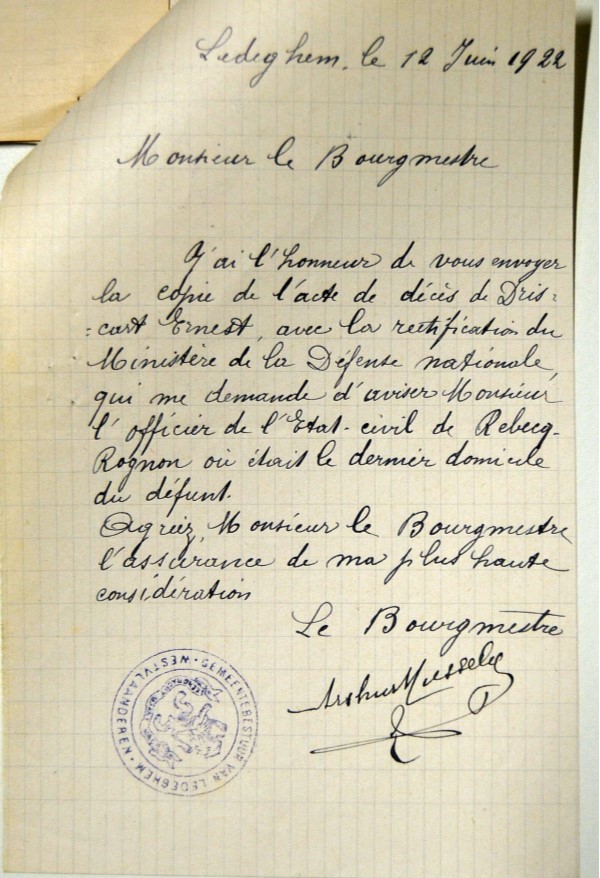 Ledeghem, le 12 Juin 1922
Monsieur le Bourgmestre
J'ai l'honneur de vous envoyer
la copie de l'acte de décès de Dris-
-cart Ernest, avec la rectification du
Ministère de la Défense nationale,
qui me demande d'aviser Monsieur
l'officier de l'Etat-civil de Rebecq-
Rognon où était le dernier domicile
du défunt.
Agréez, Monsieur le Bourgmestre
l'assurance de ma plus haute
considération
Le Bourgmestre
Arthur
GEMEENTEBESTUUR VAN LEDEGHEM · WESTVLAANDEREN ·